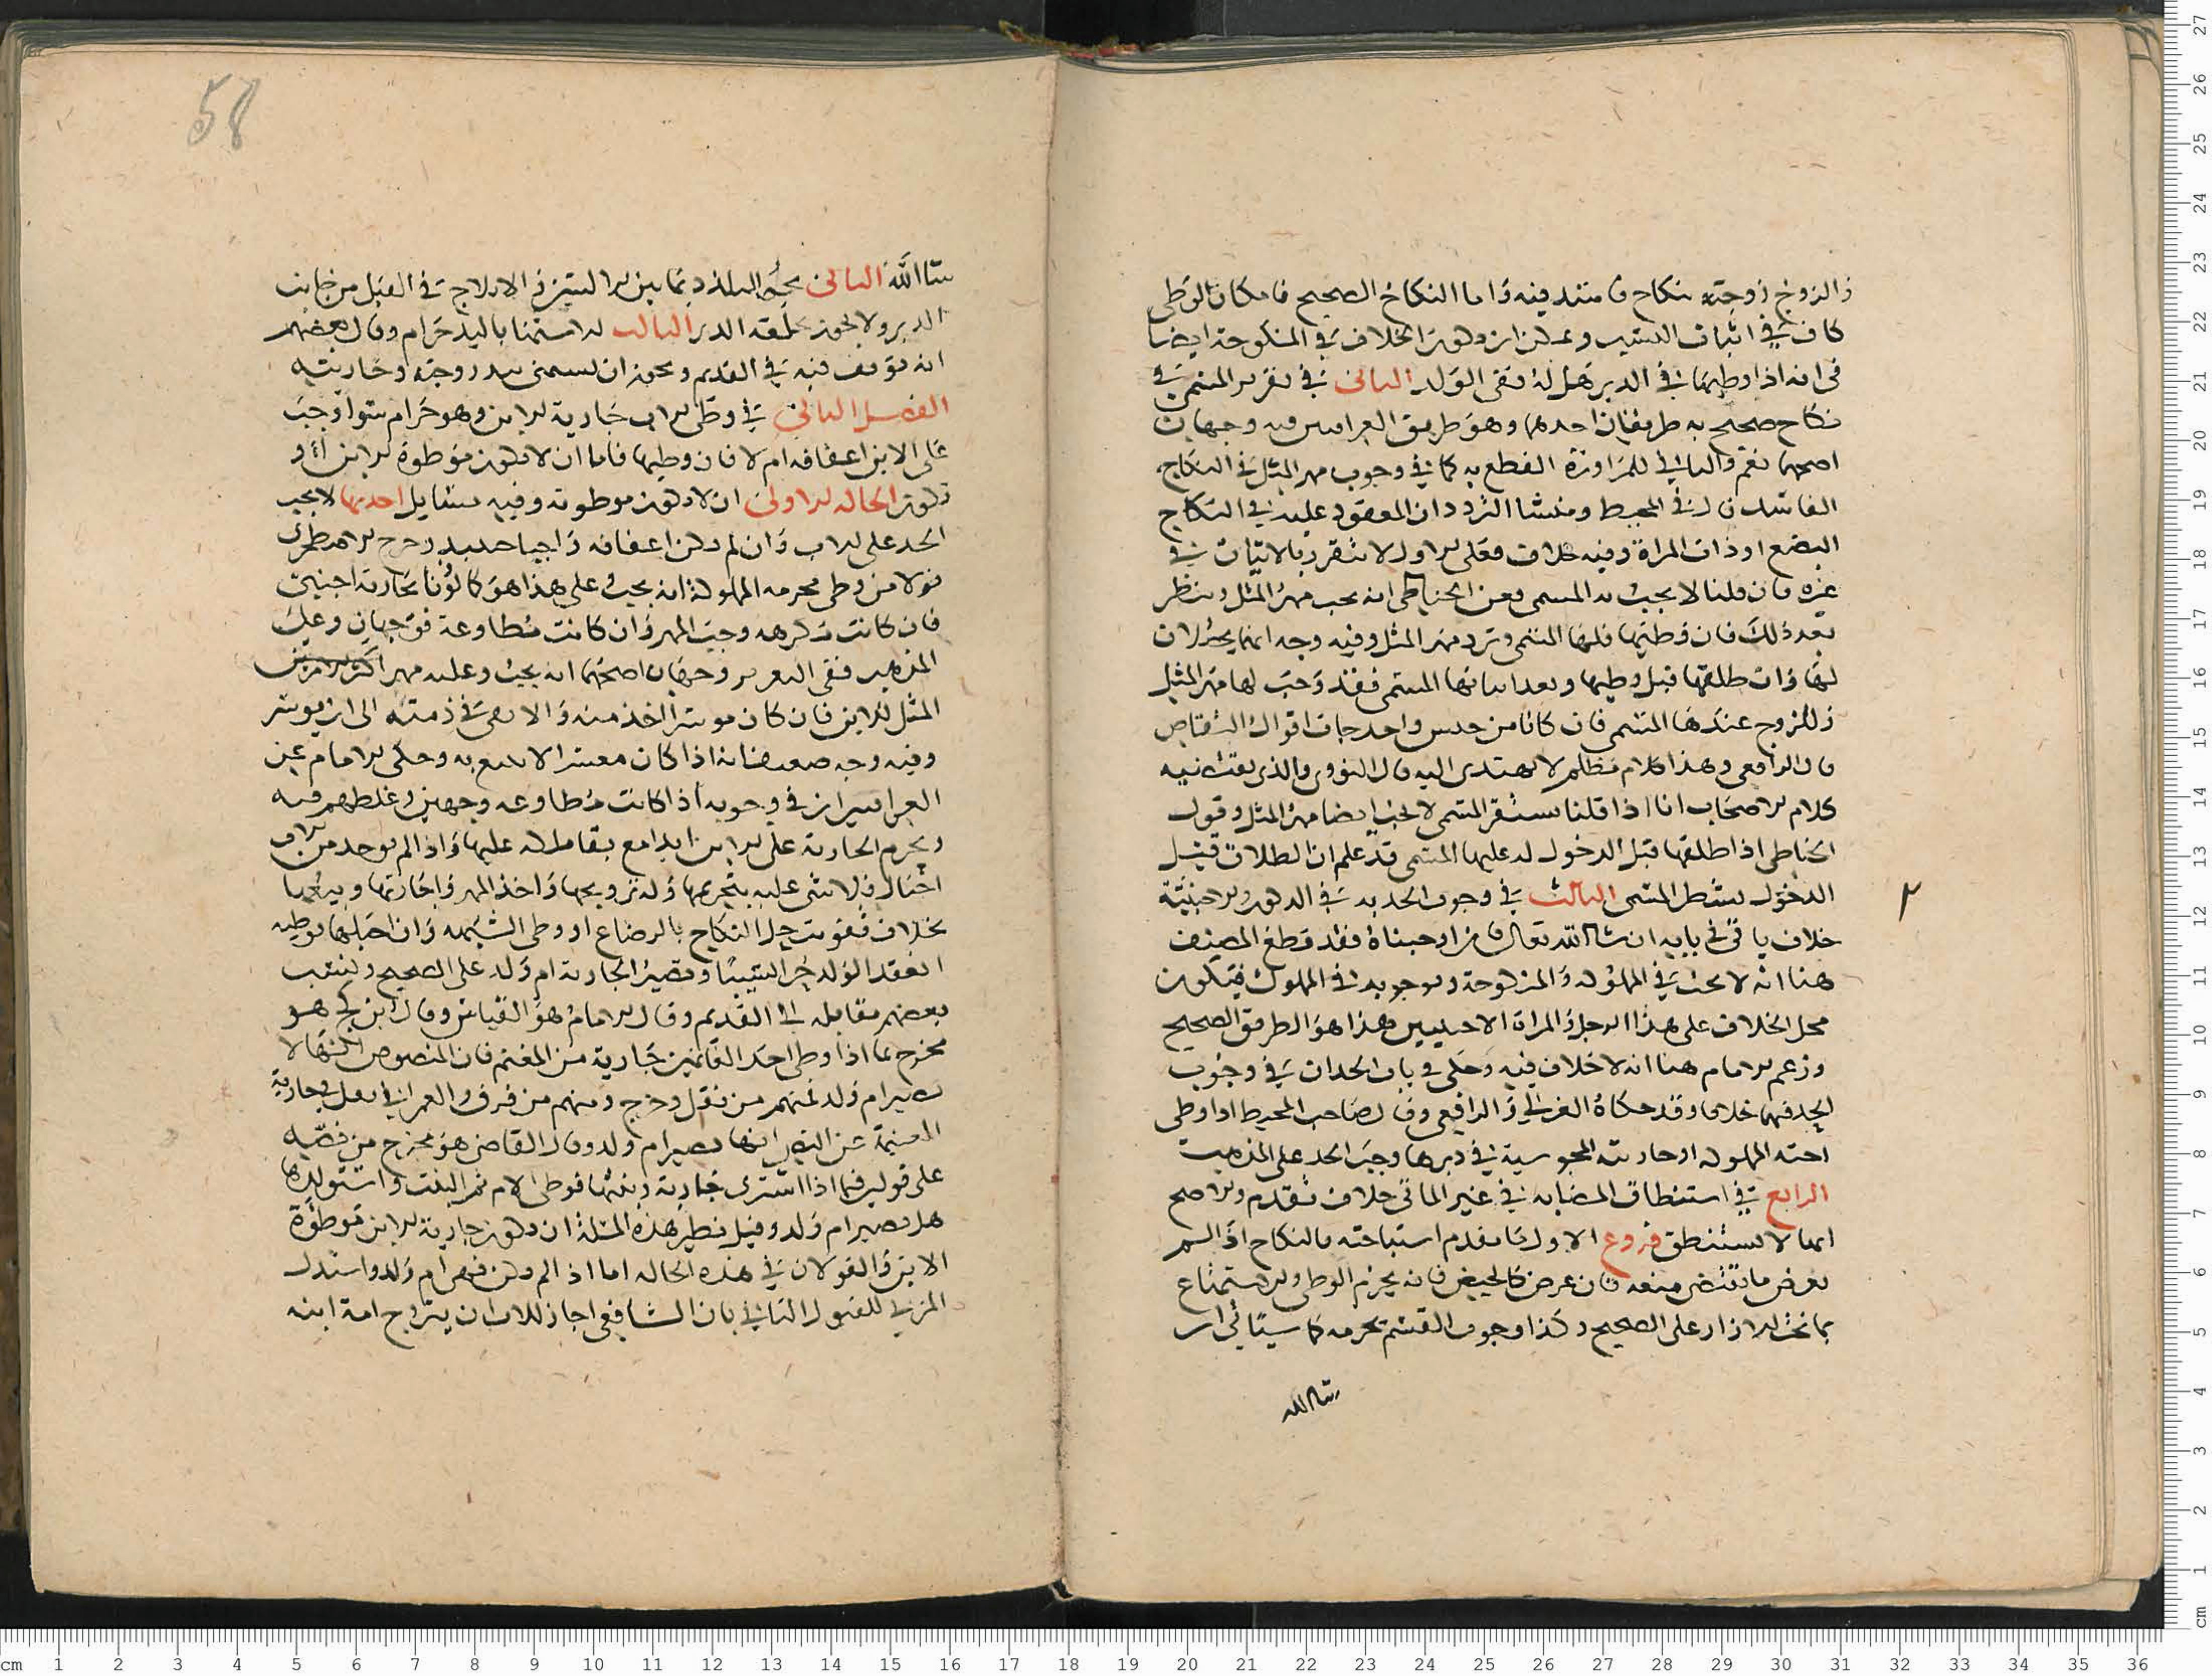 والزوج زوجته بنكاح فاسد فيه واما النكاح الصحيح فامكان الوطي
كاف في اثبات النسب ويمكن ان يكون الخلاف في المنكوحة ايضا
في انه اذا وطيها في الدبر هل له نفي الولد الثاني في تقرير المسمى في
نكاح صحيح به طريقان احدهما وهو طريق العراقيين فيه وجهان
اصحهما نعم والثاني للمراوزة القطع به كما في وجوب مهر المثل في النكاح
الفاسد قال في المحيط ومنشا التردد ان المعقود عليه في النكاح
البضع او ذات المراة وفيه خلاف فعلى الاول لا يتقرر بالاتيان في
غيره فان قلنا لا يجب به المسمى فعن الحناطي انه يجب مهر المثل وينظر
بعد ذلك فان وطيها فلها المسمى وترد مهر المثل وفيه وجه
لها وان طلقها قبل وطيها وبعد اتيانها المسمى فقد وجب لها مهر المثل
وللزوج عندها المسمى فان كانا من جنس واحد جات اقوال التقاص
قال الرافعي وهذا كلام مظلم لا يهتدى اليه قال النووي والذي يقتضيه
كلام الاصحاب انا اذا قلنا يستقر المسمى لا يجب ايضا مهر المثل وقول
الحناطي اذا طلقها قبل الدخول له عليها المسمى قد علم ان الطلاق قبل
الدخول يشطر المسمى الثالث في وجوب الحد به في الذكور والاجنبية
خلاف ياتي في بابه ان شا الله تعالى فان اوجبناه فقد قطع المصنف
هنا انه لا يجب في المملوكة والمنكوحة وبوجوبه في المملوك فيكون
محل الخلاف على هذا الرجل والمراة الاجنبيين هذا هو الطريق الصحيح
وزعم الامام هنا انه لا خلاف فيه وحكى في باب الحد ان في وجوب
الحد فيهما خلافا وقد حكاه الغزالي والرافعي وقال صاحب المحيط اذا وطي
اخته المملوكة او جاريته المجوسية في دبرها وجب الحد على المذهب
الرابع في استنطاق المصابة في غير الماتي خلاف تقدم والاصح
انها لا تستنطق فروع الاول ما تقدم استباحته بالنكاح اذا لم
يعرض ما يقتضي منعه فان عرض كالحيض فانه يحرم الوطي والاستمتاع
بما تحت الازار على الصحيح وكذا وجوب القسم تحرمه كما سياتي ان
شا الله
58
شا الله الثاني يجوز التلذذ بما بين الاليتين والايلاج في القبل من جانب
الدبر ولا يجوز بحلقه الدبر الثالث الاستمنا باليد حرام وقال بعضهم
انه توقف فيه في القديم ويجوز ان يستمني بيد زوجته وجاريته
الفصل الثاني في وطي الاب جارية الابن وهو حرام سوا وجب
على الابن اعفافه ام لا فان وطيها فاما ان لا تكون موطوة الابن او
تكون الحالة الاولى ان لا تكون موطوته وفيه مسايل احدها لا يجب
الحد على الاب وان لم يكن اعفافه واجبا حينيذ وخرج الاصطخري
قولا من وطي محرمه المملوكة انه يجب على هذا هو كالزنا بجارية اجنبي
فان كانت مكرهه وجب المهر وان كانت مطاوعة فوجهان وعلى
المذهب ففي التعزير وجهان اصحهما انه يجب وعليه مهر
المثل للابن فان كان موسرا اخذ منه والا بقي في ذمته الى ان يوسر
وفيه وجه ضعيف انه اذا كان معسرا لا يتبع به وحكى الامام عن
العراقيين ان في وجوبه اذا كانت مطاوعه وجهين وغلطهم فيه
ويحرم الجارية على الابن ابدا مع بقا ملكه عليها واذا لم يوجد من الاب
احبال فلا شي عليه بتحريمها وله تزويجها واخذ المهر واجارتها وبيعها
بخلاف تفويت حل النكاح بالرضاع او وطي الشبهه وان احبلها بوطيه
انعقد الولد حرا نسيبا وتصير الجارية ام ولد على الصحيح ونسب
بعضهم مقابله الى القديم وقال الامام هو القياس وقال ابن كج هو
مخرج مما اذا وطي احد الغانمين جارية من المغنم فان المنصوص انها لا
تصير ام ولد فمنهم من نقل وخرج ومنهم من فرق والعمراني نقل في جارية
المغنم عن النص انها تصير ام ولد وقال القاضي هو مخرج من نصه
على قولين فيما اذا اشترى جارية وبنتها فوطي الام ثم البنت واستولدها
هل تصير ام ولد وقيل نظير هذه المسلة ان تكون جارية الابن موطوة
الابن والقولان في هذه الحالة اما اذا لم يكن فهي ام ولد واستدل
المزني للقول الثاني بان الشافعي اجاز للاب ان يتزوج امة ابنه